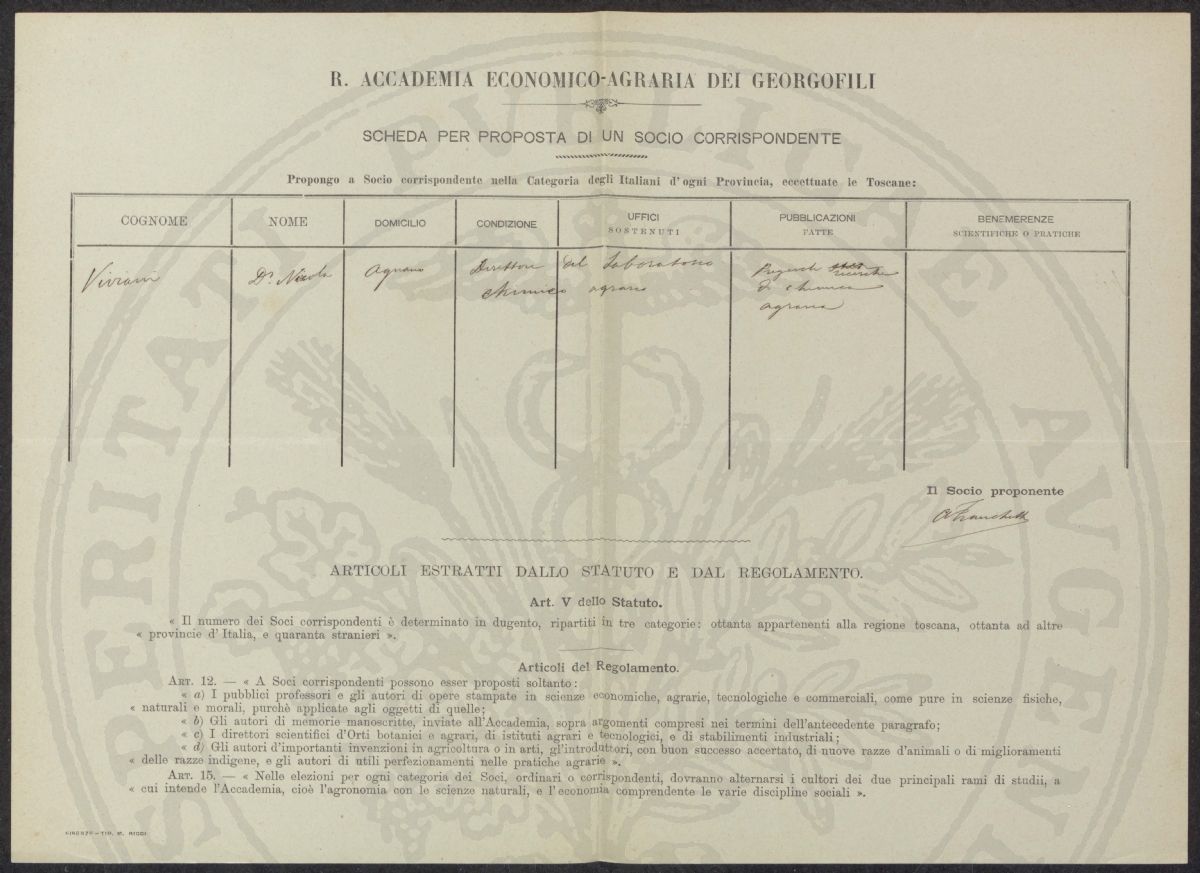 R. ACCADEMIA ECONOMICO-AGRARIA DEI GEORGOFILI
SCHEDA PER PROPOSTA DI UN SOCIO CORRISPONDENTE
Propongo a Socio corrispondente nella Categoria degli Italiani d'ogni Provincia, eccettuate le Toscane:
COGNOME NOME DOMICILIO CONDIZIONE UFFICI SOSTENUTI PUBBLICAZIONI FATTE BENEMERENZE SCIENTIFICHE O PRATICHE
Viviani Dr. Nicola Direttore del Laboratorio ricerche
chimico agrario di chimica
agraria
Il Socio proponente
A Franchetti
ARTICOLI ESTRATTI DALLO STATUTO E DAL REGOLAMENTO.
Art. V dello Statuto.
« Il numero dei Soci corrispondenti è determinato in dugento, ripartiti in tre categorie: ottanta appartenenti alla regione toscana, ottanta ad altre
« provincie d'Italia, e quaranta stranieri ».
Articoli del Regolamento.
ART. 12. — « A Soci corrispondenti possono esser proposti soltanto:
« a) I pubblici professori e gli autori di opere stampate in scienze economiche, agrarie, tecnologiche e commerciali, come pure in scienze fisiche,
« naturali e morali, purchè applicate agli oggetti di quelle;
« b) Gli autori di memorie manoscritte, inviate all'Accademia, sopra argomenti compresi nei termini dell'antecedente paragrafo;
« c) I direttori scientifici d'Orti botanici e agrari, di istituti agrari e tecnologici, e di stabilimenti industriali;
« d) Gli autori d'importanti invenzioni in agricoltura o in arti, gl'introduttori, con buon successo accertato, di nuove razze d'animali o di miglioramenti
« delle razze indigene, e gli autori di utili perfezionamenti nelle pratiche agrarie ».
ART. 15. — « Nelle elezioni per ogni categoria dei Soci, ordinari o corrispondenti, dovranno alternarsi i cultori dei due principali rami di studii, a
« cui intende l'Accademia, cioè l'agronomia con le scienze naturali, e l'economia comprendente le varie discipline sociali ».
FIRENZE—TIP. M. RICCI